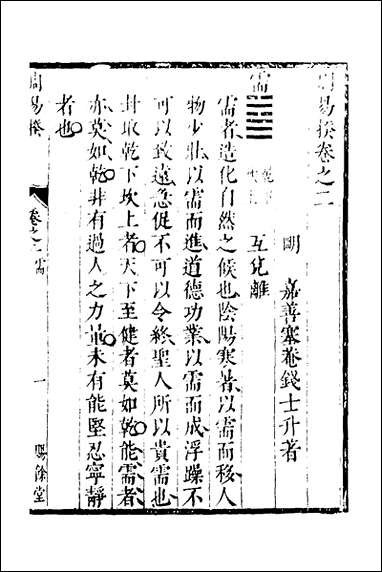 周易揆卷之二
明 嘉善塞菴錢士升著
需 乾下坎上 互兌離
需者造化自然之候也陰陽寒暑以需而移人
物少壯以需而進道德功業以需而成浮躁不
可以致遠急促不可以令終聖人所以貴需也
卦取乾下坎上者天下至健者莫如乾能需者
亦莫如乾非有過人之力量未有能堅忍寧靜
者也
周易揆 卷之二 需 一 賜餘堂